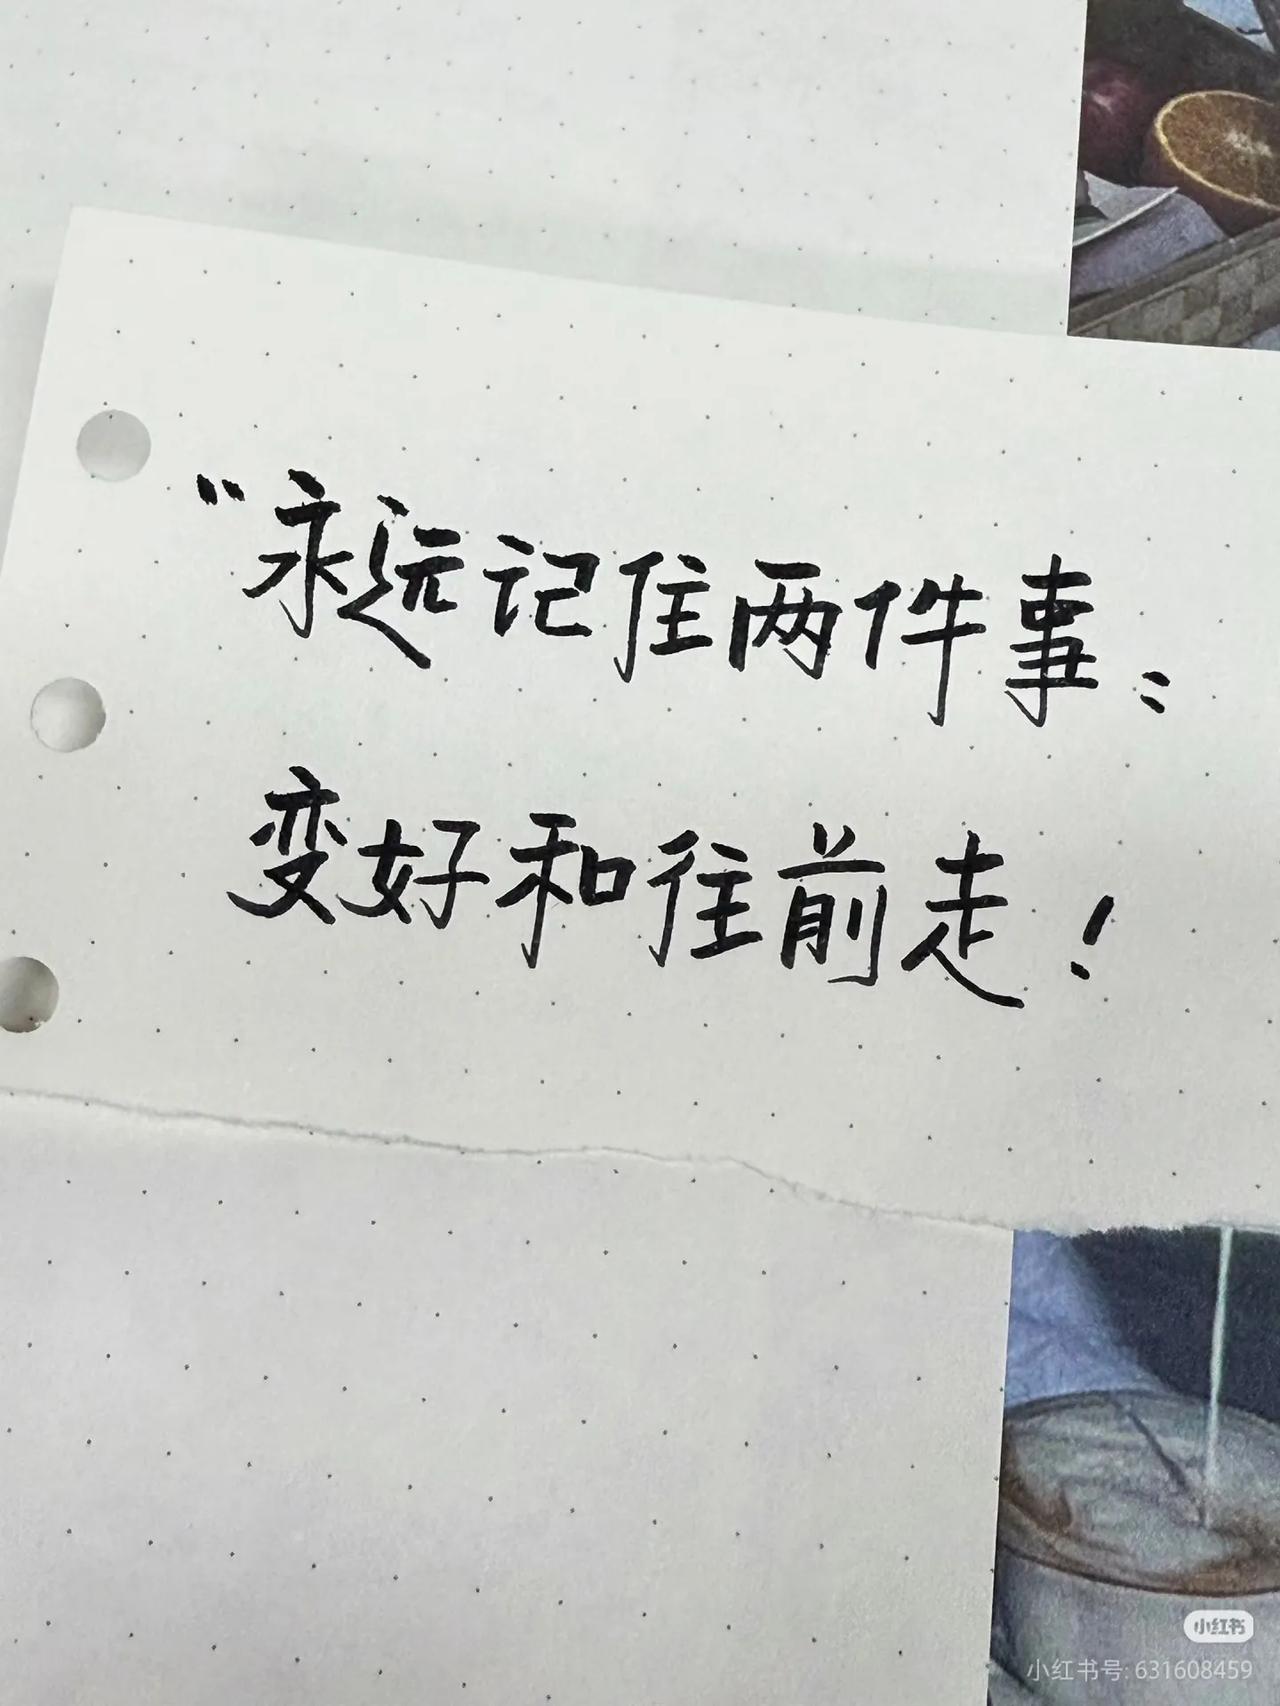 “永远记住两件事：
变好和往前走！
小红书
小红书号: 631608459